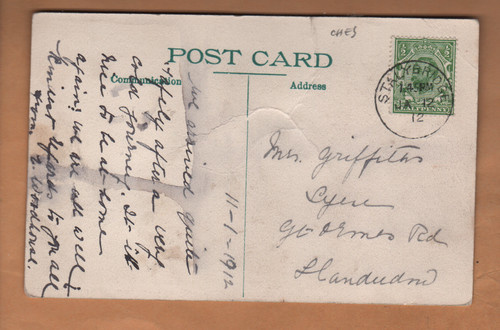 CHES
POST CARD
Communication
Address
STALYBRIDGE
1.45 PM
JA 12
12
11-1-1912
We arrived quite
safely after a very
cold journey. It is
nice to be at home
again, we are all well
Kindest regards to you all
from E. Woodhouse.
Mrs. Griffiths
Gt Ormes Rd
Llandudno